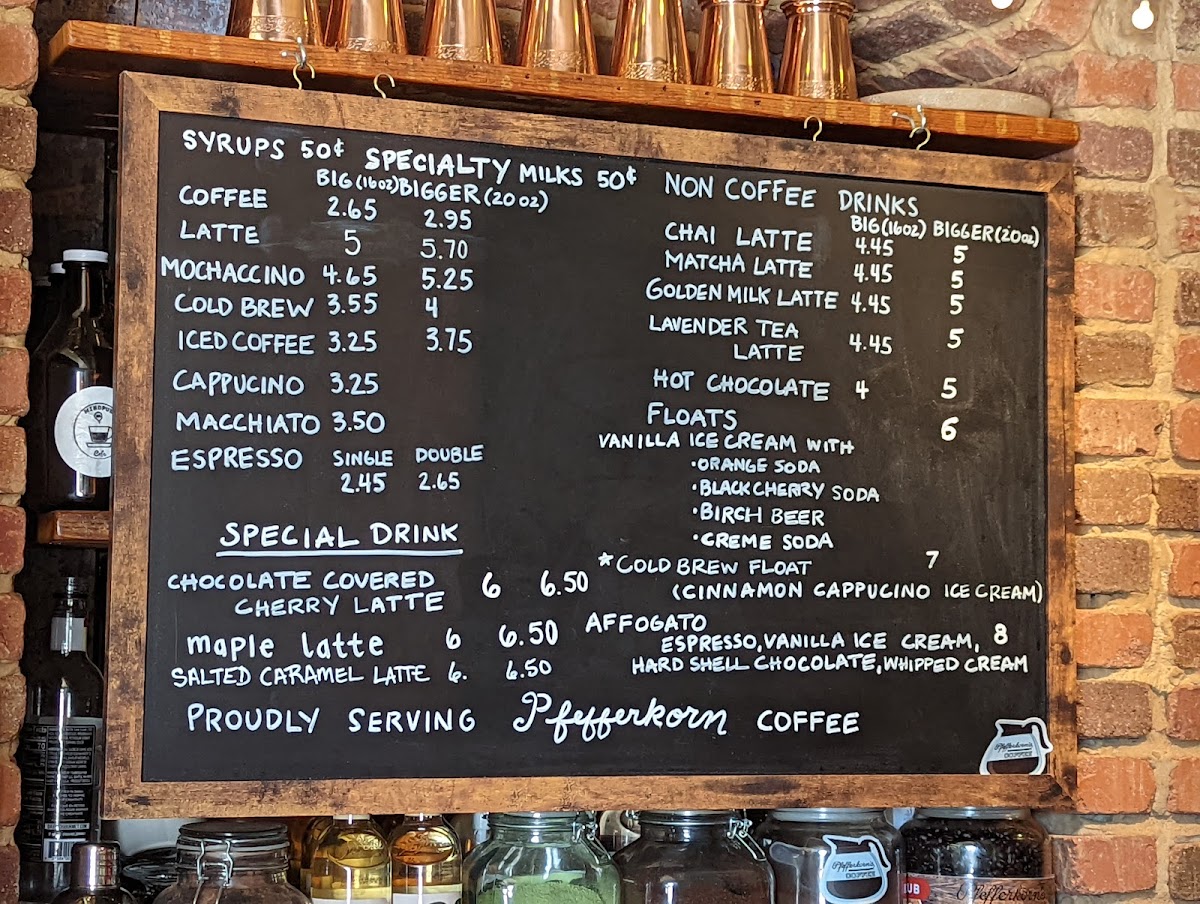 SYRUPS 50¢ SPECIALTY MILKS 50¢
BIG (16oz) BIGGER (20 oz)
COFFEE 2.65 2.95
LATTE 5 5.70
MOCHACCINO 4.65 5.25
COLD BREW 3.55 4
ICED COFFEE 3.25 3.75
CAPPUCINO 3.25
MACCHIATO 3.50
ESPRESSO SINGLE DOUBLE
2.45 2.65
SPECIAL DRINK
CHOCOLATE COVERED
CHERRY LATTE 6 6.50
maple latte 6 6.50
SALTED CARAMEL LATTE 6. 6.50
NON COFFEE DRINKS
BIG (16oz) BIGGER (20oz)
CHAI LATTE 4.45 5
MATCHA LATTE 4.45 5
GOLDEN MILK LATTE 4.45 5
LAVENDER TEA
LATTE 4.45 5
HOT CHOCOLATE 4 5
FLOATS 6
VANILLA ICE CREAM WITH
·ORANGE SODA
·BLACK CHERRY SODA
·BIRCH BEER
·CREME SODA
*COLD BREW FLOAT 7
(CINNAMON CAPPUCINO ICE CREAM)
AFFOGATO
ESPRESSO, VANILLA ICE CREAM, 8
HARD SHELL CHOCOLATE, WHIPPED CREAM
PROUDLY SERVING Pfefferkorn COFFEE
Pfefferkorn's
COFFEE
Pfefferkorn's
COFFEE
Pfefferkorn's